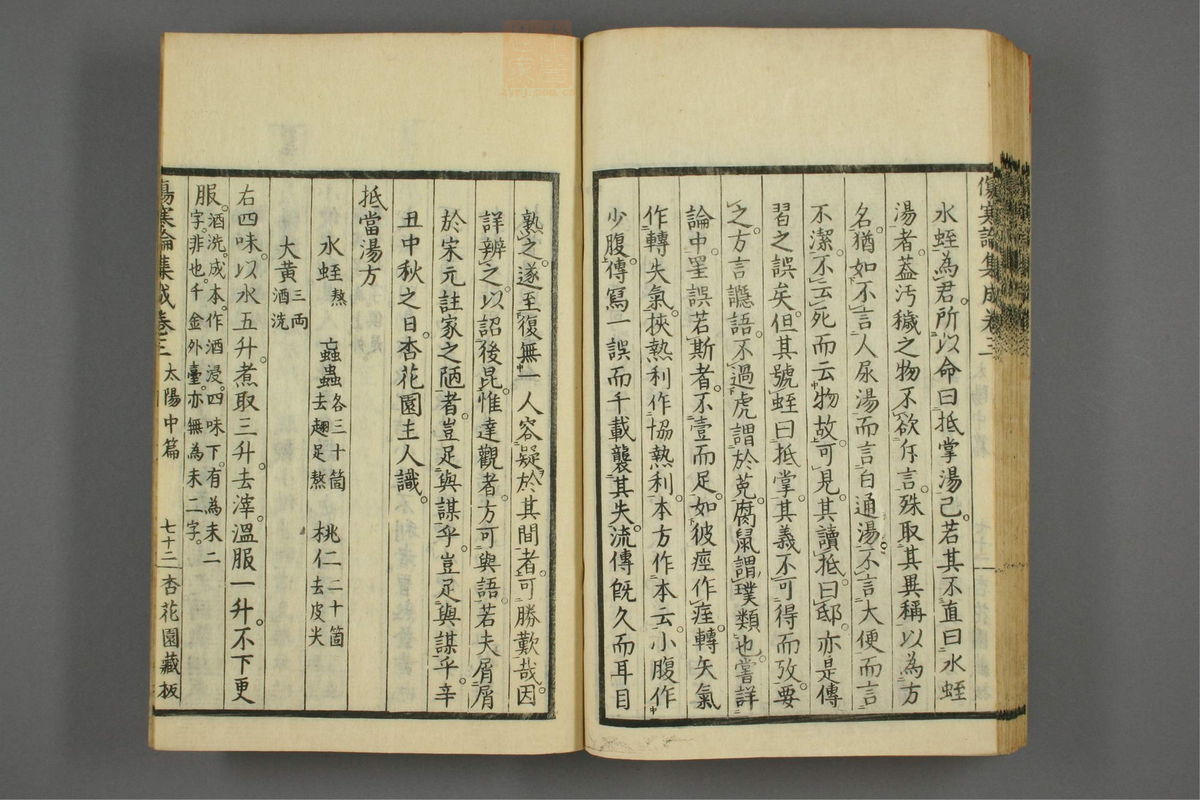 傷寒論集成卷三
水蛭為君。所以命曰抵掌湯已。若其不直曰水蛭
湯者。蓋汚穢之物。不欲斥言。殊取其異稱以為方
名。猶如不言人尿湯而言白通湯。不言大便而言
不潔。不云死而云物故。可見。其讀抵曰邸。亦是傳
習之誤矣。但其號蛭曰抵掌。其義不可得而攷。要
之方言讔語。不過虎謂於菟。腐鼠謂璞類也。嘗詳
論中。罣誤若斯者。不壹而足。如彼痙作痓。轉矢氣
作轉失氣。挾熱利作協熱利。本方作本云。小腹作
少腹。傳寫一誤而千載襲其失。流傳旣久而耳目
熟之。遂至復無一人容疑於其間者。可勝歎哉。因
詳辨之。以詔後昆。惟達觀者。方可與語。若夫屑屑
於宋元註家之陋者。豈足與謀乎。豈足與謀乎。辛
丑中秋之日。杏花園主人識。
抵當湯方
水蛭熬 蝱蟲各三十箇去翅足熬 桃仁二十箇去皮尖
大黃三両酒洗
右四味。以水五升。煮取三升。去滓。溫服一升。不下更
服。酒洗。成本。作酒浸。四味下。有為末二字。非也。千金外臺。亦無為末二字。
傷寒論集成卷三 太陽中篇 七十二 杏花園藏板